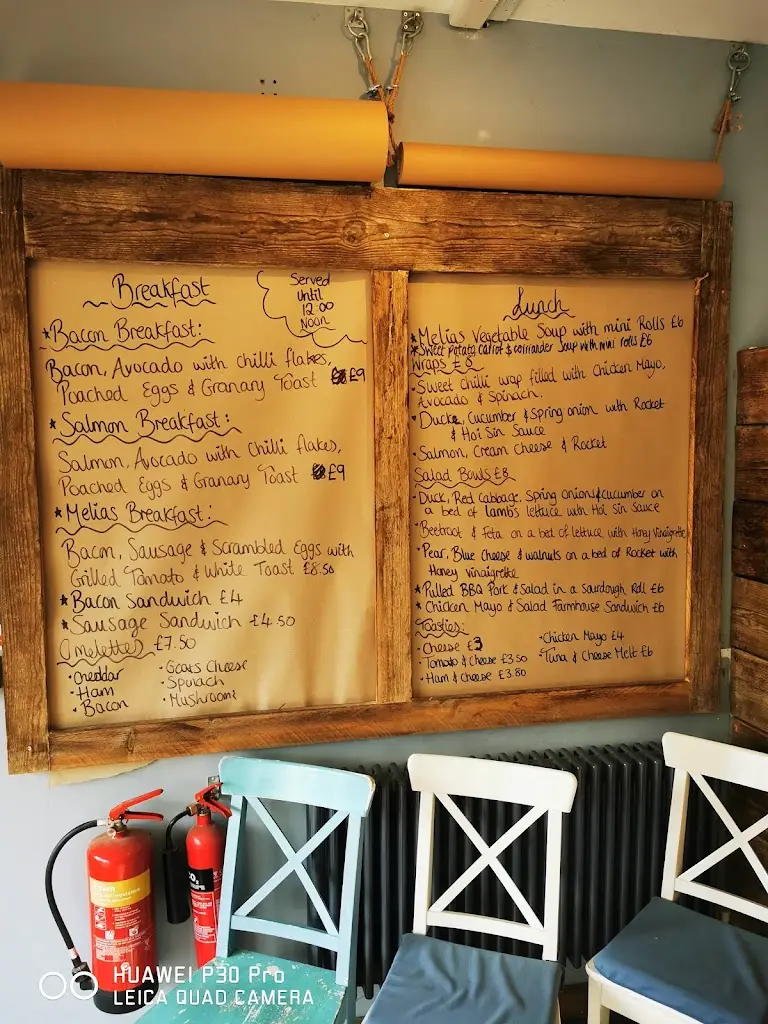 Breakfast
Served
Until
12:00
Noon
*Bacon Breakfast:
Bacon, Avocado with chilli flakes,
Poached Eggs & Granary Toast £9
*Salmon Breakfast:
Salmon, Avocado with chilli flakes,
Poached Eggs & Granary Toast £9
*Melias Breakfast:
Bacon, Sausage & Scrambled Eggs with
Grilled Tomato & White Toast £8.50
*Bacon Sandwich £4
*Sausage Sandwich £4.50
Omelettes £7.50
•Cheddar
•Ham
•Bacon
•Goats Cheese
•Spinach
•Mushrooms
Lunch
*Melias Vegetable Soup with mini Rolls £6
*Sweet Potato, Carrot & corriander Soup with mini rolls £6
Wraps £8
•Sweet Chilli wrap filled with Chicken Mayo,
Avocado & Spinach.
•Duck, Cucumber & Spring onion with Rocket
& Hoi Sin Sauce
•Salmon, Cream Cheese & Rocket
Salad Bowls £8
•Duck, Red Cabbage, Spring onions & cucumber on
a bed of lamb's lettuce with Hoi Sin Sauce
•Beetroot & Feta on a bed of lettuce with Honey Vinaigrette
•Pear, Blue Cheese & walnuts on a bed of Rocket with
Honey vinaigrette
*Pulled BBQ Pork & Salad in a Sourdough Roll £6
*Chicken Mayo & Salad Farmhouse Sandwich £6
Toasties:
•Cheese £3
•Tomato & Cheese £3.50
•Ham & Cheese £3.80
•Chicken Mayo £4
•Tuna & Cheese Melt £6
CO₂
HUAWEI P30 Pro
LEICA QUAD CAMERA